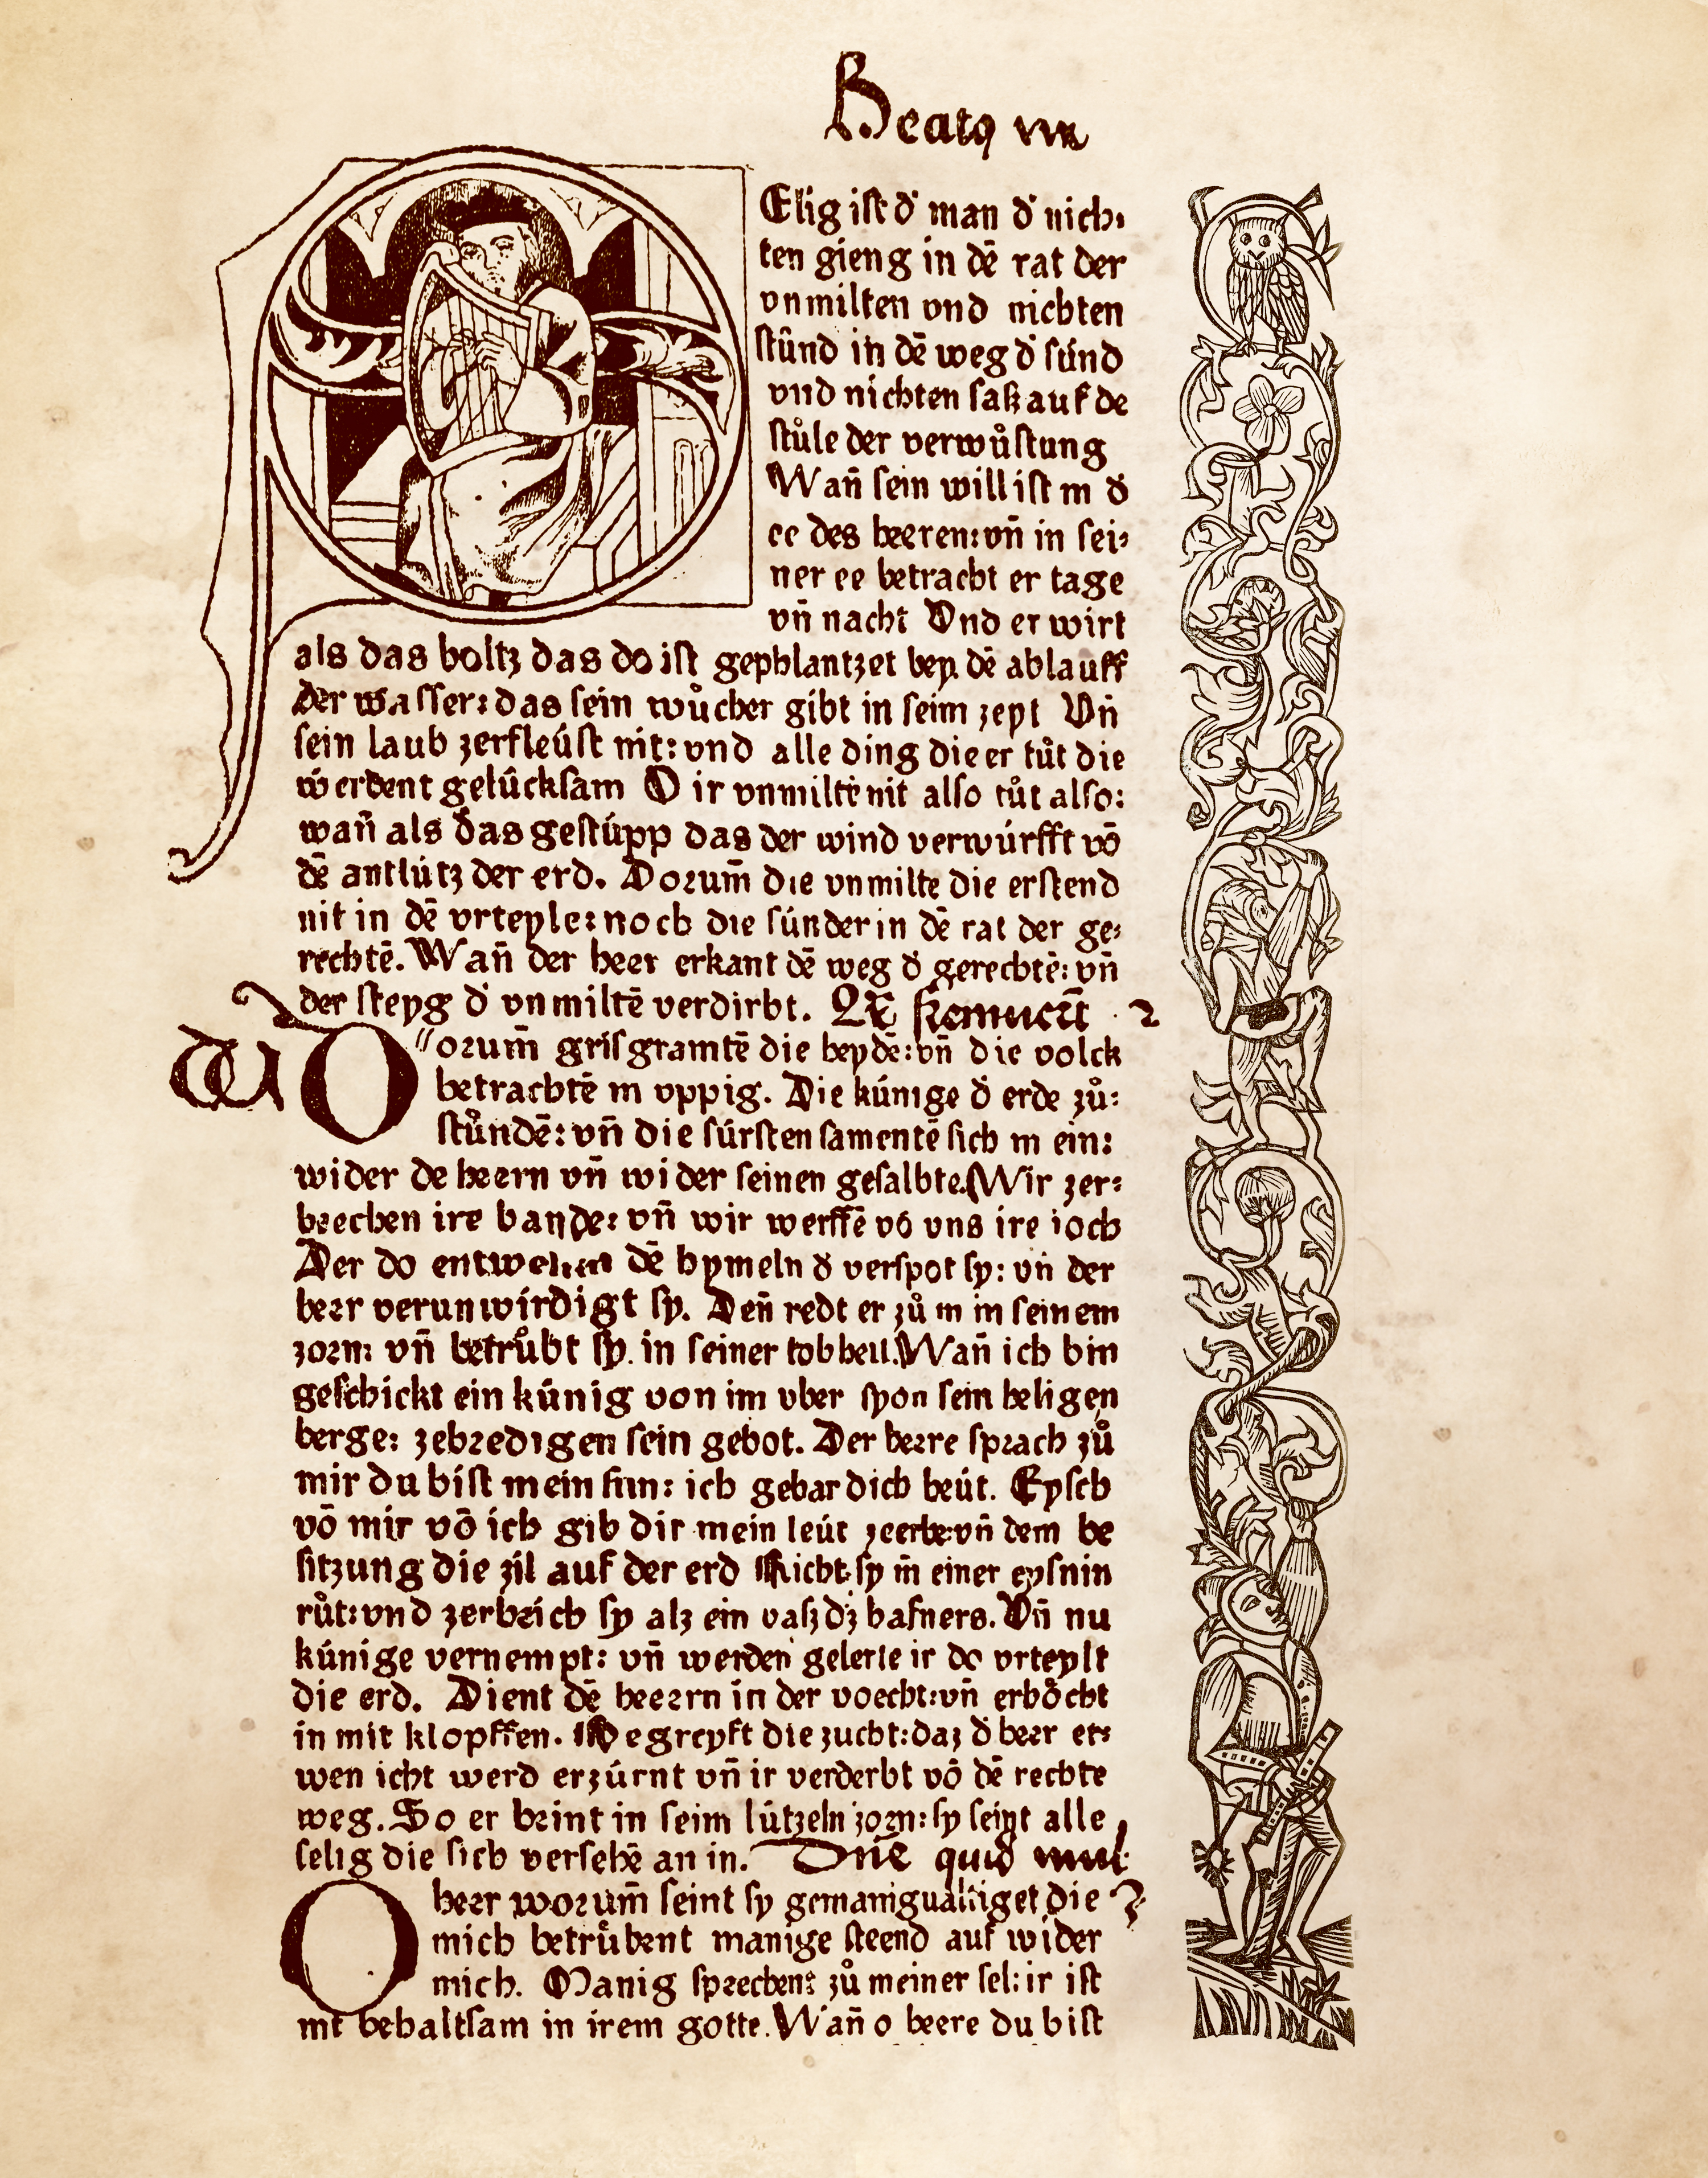 Beatꝯ vir
Elig iſt d̕ man d̕ nich⸗
ten gieng in dē rat der
vnmilten vnd nichten
ſtůnd in dē weg d̕ ſúnd
vnd nichten ſaß auf de
ſtůle der verwůſtung
Wañ ſein will iſt in d̕
ee des herren: vñ in ſei⸗
ner ee betracht er tage
vñ nacht Vnd er wirt
als das holtz das do iſt gephlantzet bey dē ablauff
der waſſer: das ſein wůcher gibt in ſeim zeyt Vñ
ſein laub zerfleúſt nit: vnd alle ding die er tůt die
werdent gelúckſam O ir vnmiltē nit alſo tůt alſo:
wañ als das geſtúpp das der wind verwúrfft vō
dē antlútz der erd. Dorum̄ die vnmilte die erſtend
nit in dē vrteyle: noch die ſúnder in dē rat der ge⸗
rechtē. Wañ der herr erkant dē weg d̕ gerechtē: vñ
der ſteyg d̕ vnmiltē verdirbt.
W Orum̄ griſgramtē die heydē: vñ die volck
betrachtē in vppig. Die kúnige d̕ erde zů⸗
ſtůndē: vñ die fúrſten ſamentē ſich in ein:
wider de herrn vñ wider ſeinen geſalbte. Wir zer⸗
brechen ire bande: vñ wir werffē vō vns ire ioch
Der do entwelt in dē hymeln d̕ verſpot ſy: vñ der
herr verunwirdigt ſy. Deñ redt er zů in in ſeinem
zorn: vñ betrůbt ſy in ſeiner tobheit. Wañ ich bin
geſchickt ein kúnig von im vber ſyon ſein heligen
berge: zebredigen ſein gebot. Der herre ſprach zů
mir du biſt mein ſun: ich gebar dich heút. Eyſch
vō mir vō ich gib dir mein leút zeerbe: vñ dem be
ſitzung die zil auf der erd Richt ſy in einer eyſnin
růt: vnd zerbrich ſy alz ein vaß dz hafners. Vñ nu
kúnige vernempt: vñ werden gelerte ir do vrteylt
die erd. Dient dē heerrn in der voecht: vñ erhöcht
in mit klopffen. Begreyft die zucht: daz d̕ herr et⸗
wen icht werd erzúrnt vñ ir verderbt vō dē rechte
weg. So er brint in ſeim lútzeln zorn: ſy ſeint alle
ſelig die ſich verſehē an in. Dn̄e quid mul⸗
O herr worum̄ ſeint ſy gemanigualtiget die
mich betrůbent manige ſteend auf wider
mich. Manig ſprechent zů meiner ſel: ir iſt
nit behaltſam in irem gotte. Wañ o herre du biſt